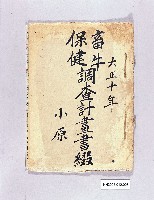 大正十年
畜牛
保健調查計畫書綴
小原